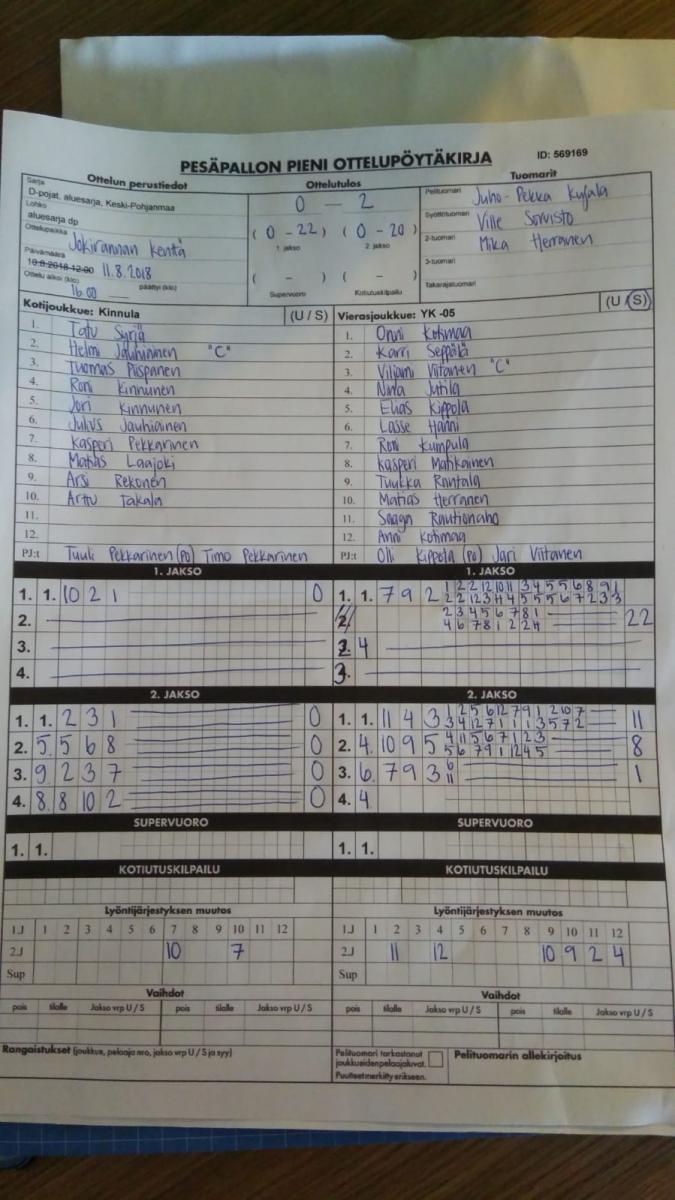 PESÄPALLON PIENI OTTELUPÖYTÄKIRJA ID: 569169
Ottelun perustiedot
Sarja
D-pojat, aluesarja, Keski-Pohjanmaa
Lohko
aluesarja dp
Ottelupaikka
Jokirannan kenttä
Päivämäärä
10.8.2018 12:00 11.8.2018
Ottelu alkoi (klo) päättyi (klo)
16.00
Ottelutulos
0 – 2
( 0 - 22 ) ( 0 - 20 )
1. jakso 2. jakso
( - ) ( - )
Supervuoro Kotiutuskilpailu
Tuomarit
Pelituomari Juho-Pekka Kujala
Syöttötuomari Ville Sorvisto
2-tuomari Mika Herranen
3-tuomari
Takarajatuomari
Kotijoukkue: Kinnula (U / S)
1. Tatu Syrjä
2. Helmi Jauhiainen "C"
3. Tuomas Piispanen
4. Roni Kinnunen
5. Jori Kinnunen
6. Julius Jauhiainen
7. Kasperi Pekkarinen
8. Matias Laajoki
9. Arsi Rekonen
10. Arttu Takala
11.
12.
PJ:t Tuuli Pekkarinen (PO) Timo Pekkarinen
Vierasjoukkue: YK -05 (U / S)
1. Onni Kotimaa
2. Karri Seppälä
3. Viljami Viitanen "C"
4. Niina Jutila
5. Elias Kippola
6. Lasse Hanni
7. Roni Kumpula
8. Kasperi Matikainen
9. Tuukka Rantala
10. Matias Herranen
11. Saaga Rautionaho
12. Anni Kotimaa
PJ:t Olli Kippola (PO) Jari Viitanen
1. JAKSO
1. 1. 10 2 1 0
2.
3.
4.
1. JAKSO
1. 1. 7 9 2 1 2 2 12 10 11 3 4 5 5 6 8 9 1
2 2 12 3 4 4 5 5 5 6 7 2 3 3
2 3 4 5 6 7 8 1
4 6 7 8 1 2 2 4 22
2. 4
3.
2. JAKSO
1. 1. 2 3 1 0
2. 5. 5 6 8 0
3. 9. 2 3 7 0
4. 8. 8 10 2 0
2. JAKSO
1. 1. 11 4 3 1 2 5 6 12 7 9 1 2 10 7
3 4 12 7 1 1 1 3 5 7 2 11
2. 4. 10 9 5 4 11 5 6 7 1 2 3
5 6 7 9 1 12 4 5 8
3. 6. 7 9 3 6
11 1
4. 4
SUPERVUORO
1. 1.
SUPERVUORO
1. 1.
KOTIUTUSKILPAILU
KOTIUTUSKILPAILU
Lyöntijärjestyksen muutos
1.J 1 2 3 4 5 6 7 8 9 10 11 12
2.J 10 7
Sup
Lyöntijärjestyksen muutos
1.J 1 2 3 4 5 6 7 8 9 10 11 12
2.J 11 12 10 9 2 4
Sup
Vaihdot
pois tilalle Jakso vrp U / S pois tilalle Jakso vrp U / S
Vaihdot
pois tilalle Jakso vrp U / S pois tilalle Jakso vrp U / S
Rangaistukset (joukkue, pelaaja nro, jakso vrp U / S ja syy)
Pelituomari tarkastanut
joukkueiden pelaajaluvat.
Puutteet merkitty erikseen.
Pelituomarin allekirjoitus